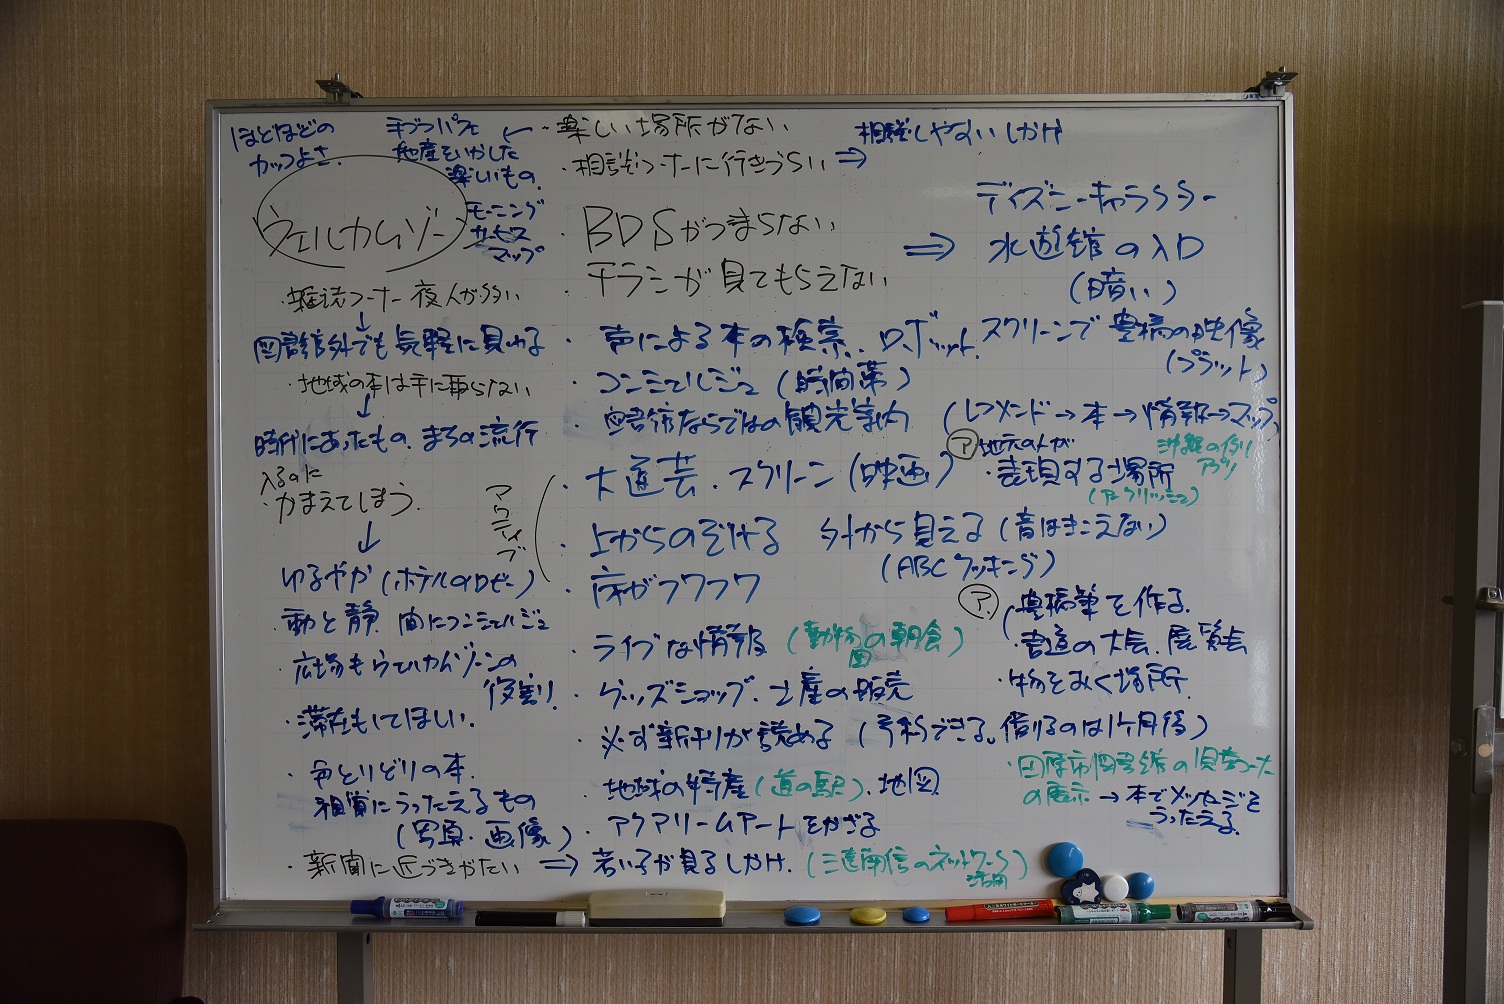 ほどほどの
カッコよさ.
手づつパフェ
地産をいかした
楽しいもの.
モーニング
サービス
マップ
ウェルカムゾーン
・雑誌コーナー 夜人が多い
↓
図書館外でも気軽に見れる
・地域の本は手に取らない
↓
時代にあったもの. まちの流行
入るのに
・かまえてしまう.
↓
ゆるやか (ホテルのロビー)
動と静. 間にコンシェルジュ
広場もウェルカムゾーンの
役割!
・滞在もしてほしい.
・色とりどりの本.
視覚にうったえるもの
(写真・画像)
・新聞に近づきがたい ⇒ 若い子が見るしかけ. (三遠南信のネットワーク
活用)
← ・楽しい場所がない
・相談コーナーに行きづらい ⇒ 相談しやすいしかけ
・BDSがつまらない
・チラシが見てもらえない
⇒ ディズニーキャラクター
水遊館の入口
(暗い)
・声による本の検索.. ロボット. スクリーンで豊橋の映像
(プラット)
・コンシェルジュ (時間帯)
図書館ならではの観光案内 (レコメンド→本→情報→マップ)
アクティブ
・大道芸. スクリーン (映画)
・上からのぞける 外から見える (音はきこえない)
(ABCクッキング)
・床がフワフワ
ア 地元の人が
・表現する場所
アプリ
ア. 豊橋筆を作る.
・書道の大会. 展覧会
・物をみがく場所.
・ライブな情報 (動物園の朝会)
・グッズショップ. 土産の販売
・必ず新刊が読める (予約できる. 借りるのは1ヶ月後)
・地域の特産 (道の駅). 地図
・アクアリームアートをかざる
・図書館の
の展示 → 本でメッセージを
うったえる.